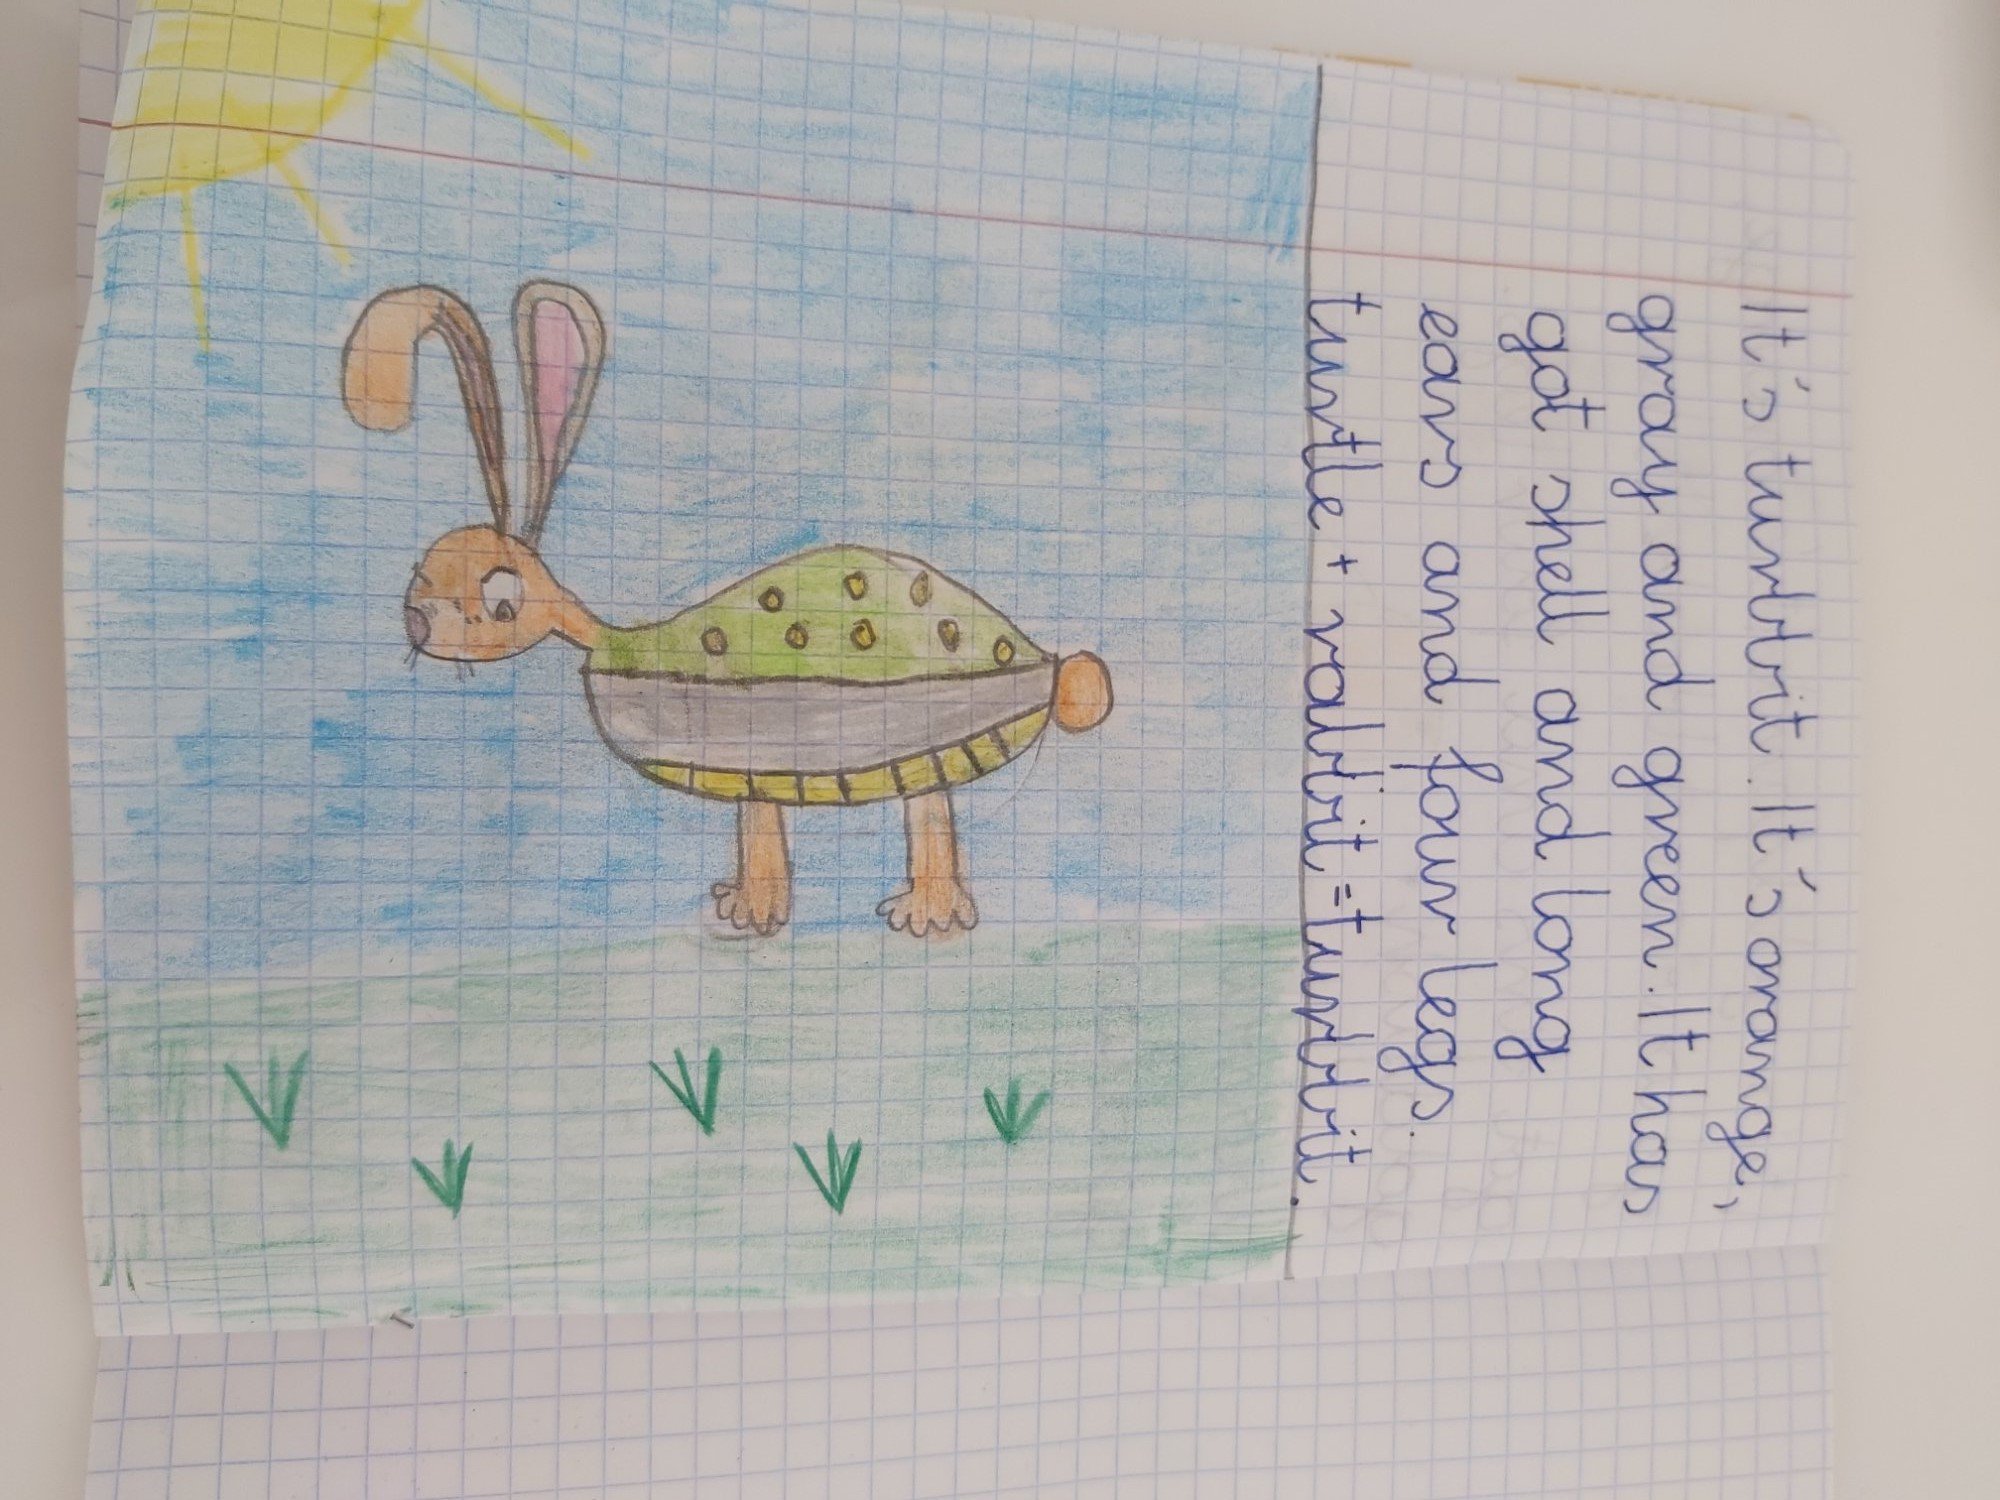 It's turbbit. It's orange,
gray and green. It has
got shell and long
ears and four legs.
turtle + rabbit = turbbit.